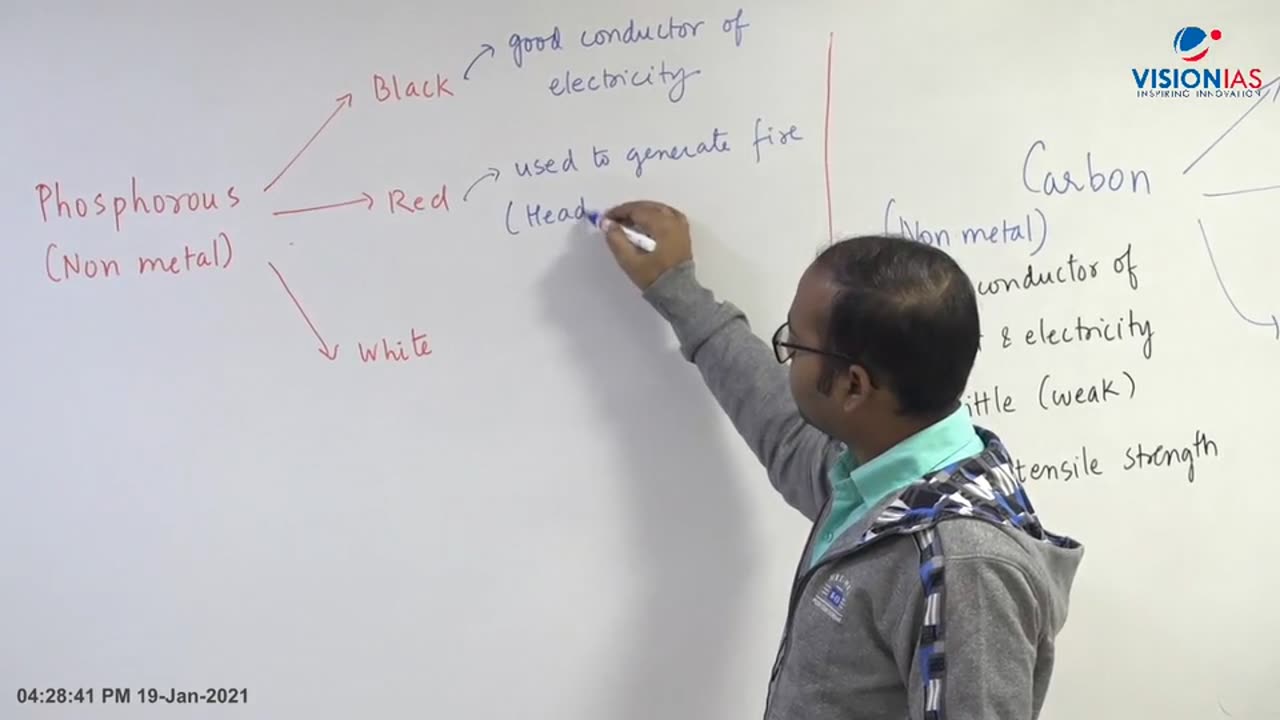 Black
good conductor of
electricity
Phosphorous
(Non metal)
Red
used to generate fire
(Head
White
Carbon
(Non metal)
conductor of
& electricity
(weak)
tensile strength
VISIONIAS
INSPIRING INNOVATION
04:28:41 PM 19-Jan-2021